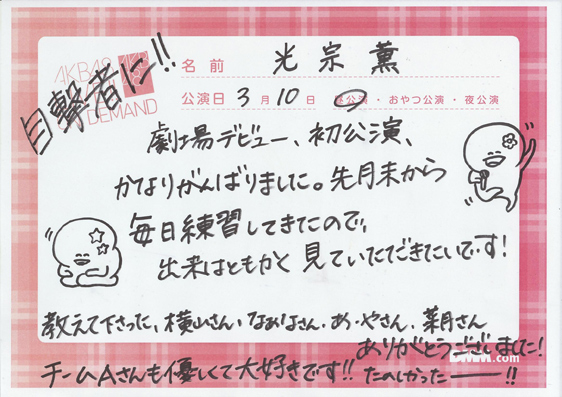 AKB48
DEMAND
目撃者に!!
名前 光宗薫
公演日 3月10日 昼公演・おやつ公演・夜公演
劇場デビュー、初公演、
かなりがんばりました。先月末から
毎日練習してきたので、
出来はともかく見ていただきたいです!
教えて下さった、横山さん、なおなさん、あ・やさん、葉月さん
ありがとうございました!
.com
チームAさんも優しくて大好きです!! たのしかったーー!!